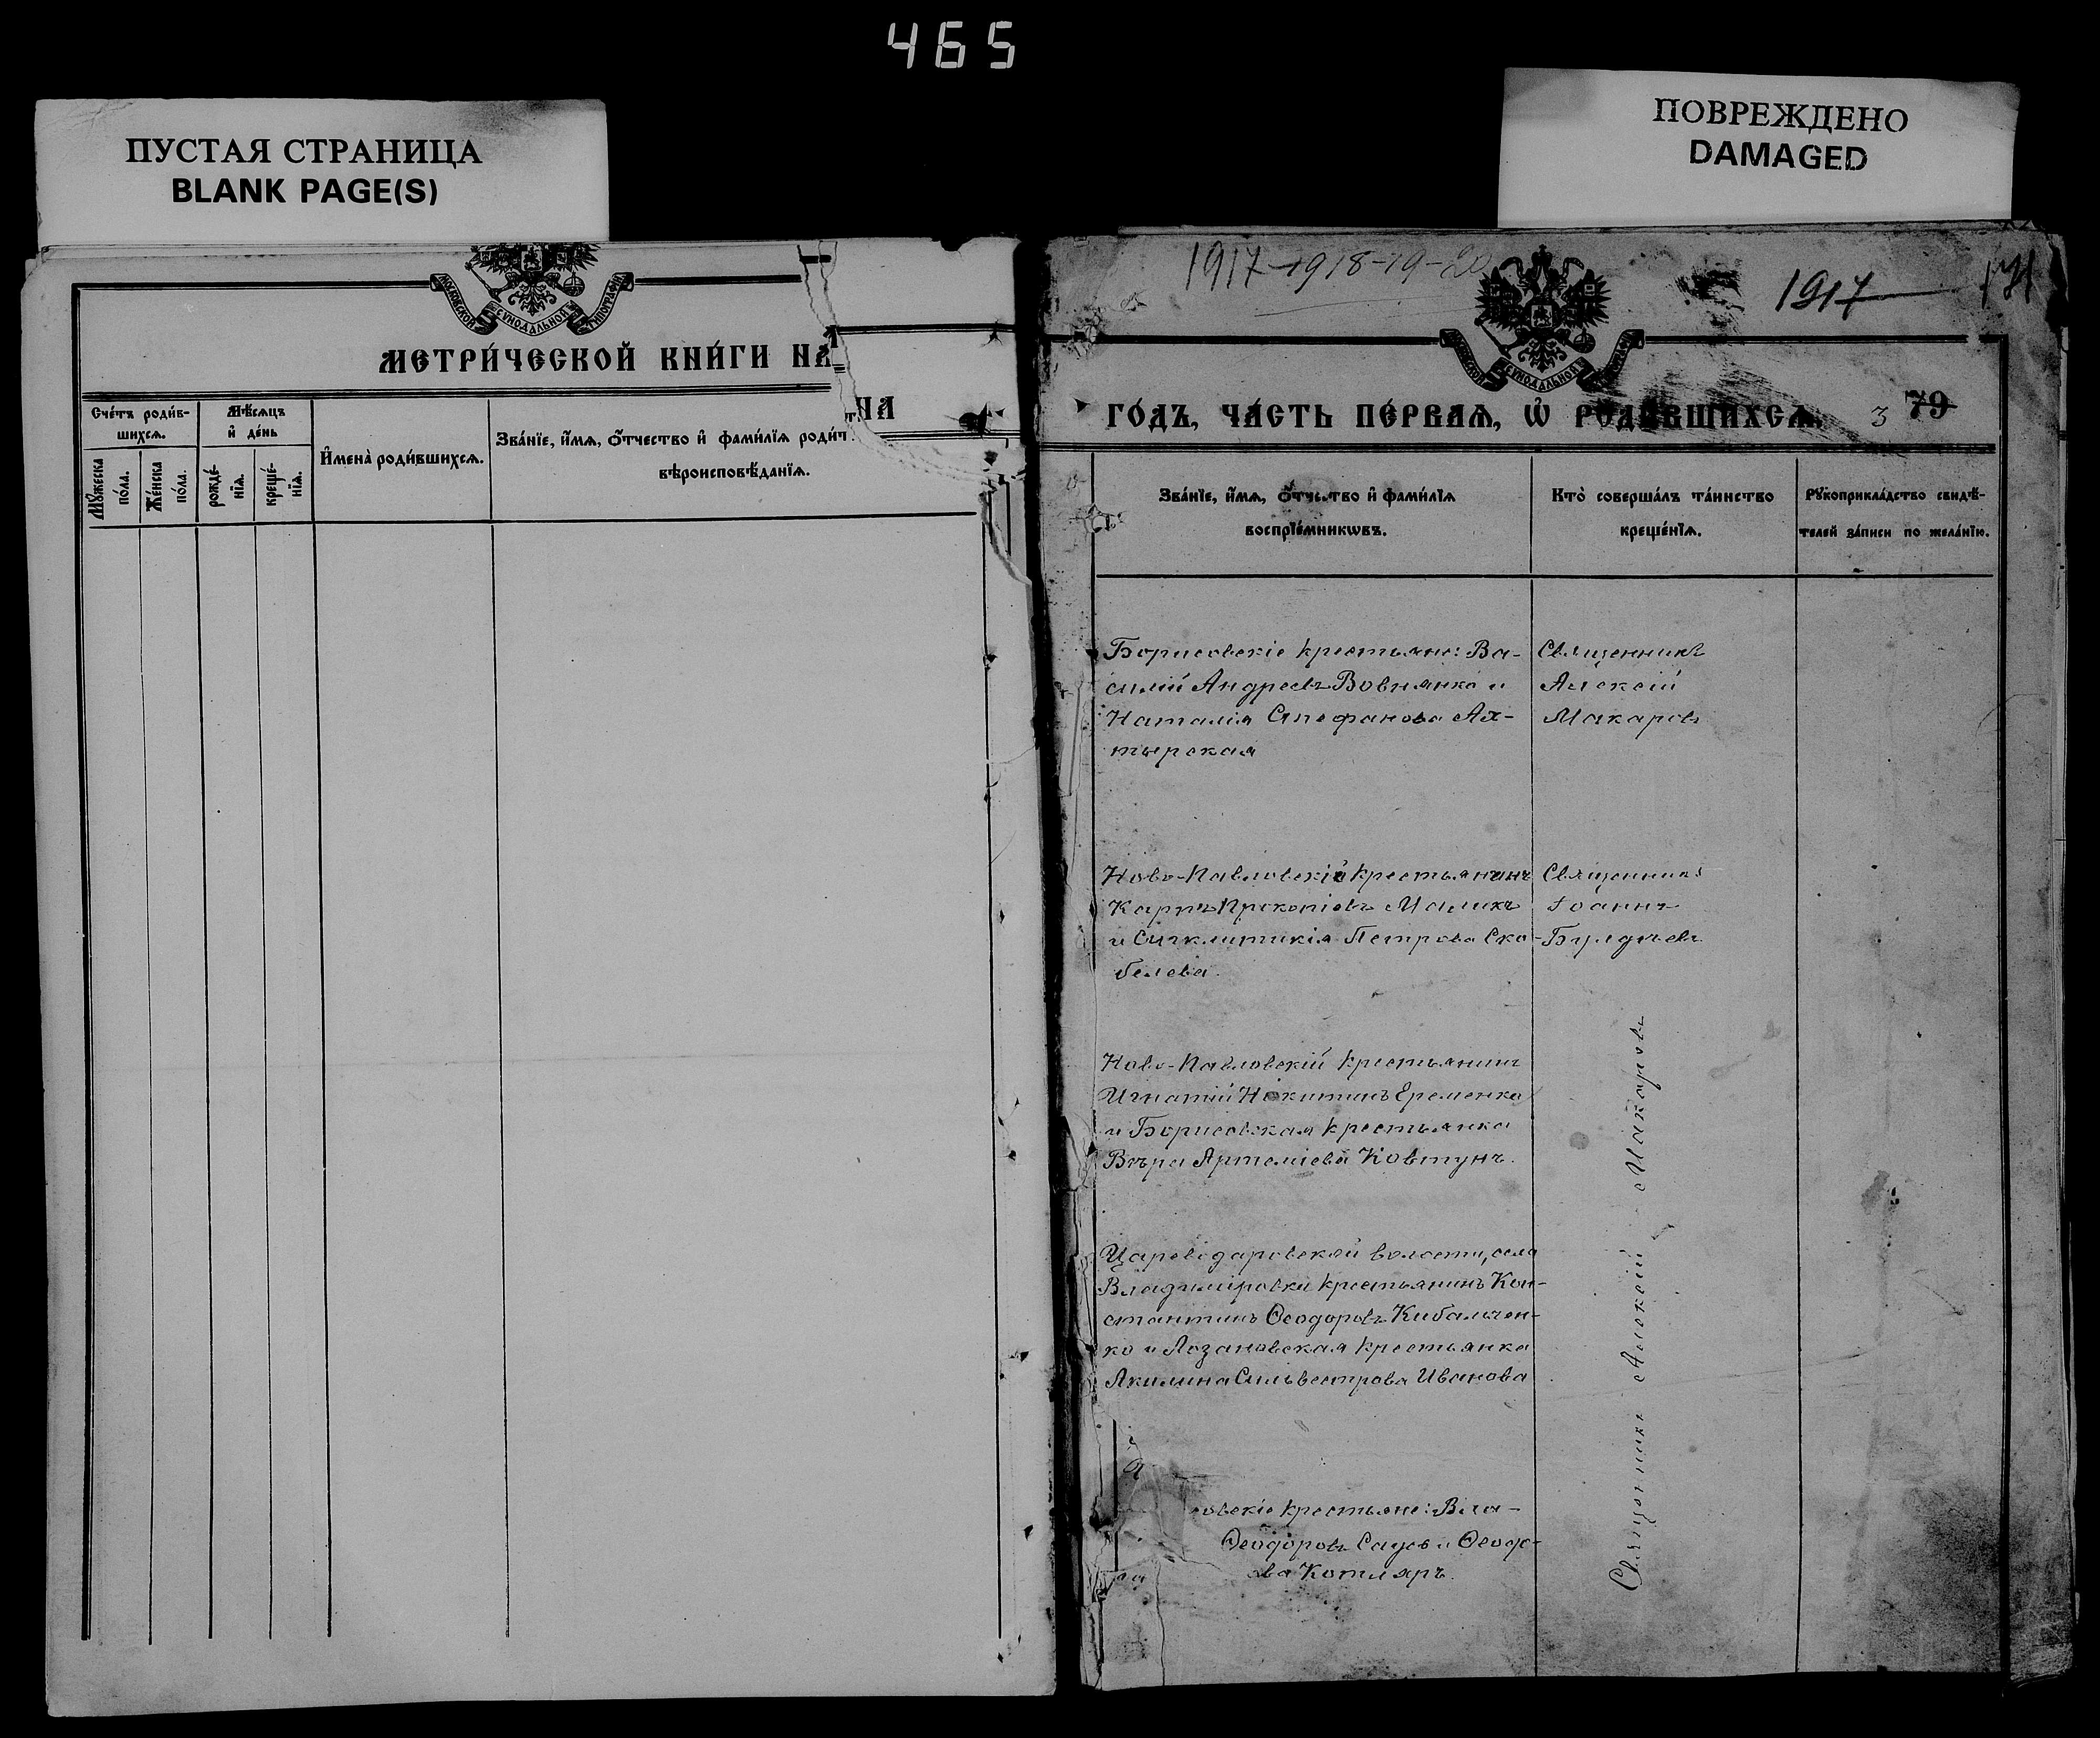 465
ПУСТАЯ СТРАНИЦА
BLANK PAGE(S)
ПОВРЕЖДЕНО
DAMAGED
МОСКОВСКОЙ СѴНОДАЛЬНОЙ ТИПОГРАФІИ
МЕТРИ́ЧЕСКОЙ КНИ́ГИ НА
НА
Сче́тъ роди́в-
шихсѧ.
Мѣ́сѧцъ
и҆ де́нь
Мꙋ́жеска
по́ла.
Же́нска
по́ла.
рожде́-
нїѧ.
креще́-
нїѧ.
И҆мена̀ роди́вшихсѧ.
Зва́нїе, и҆́мѧ, ѻ҆́тчество и҆ фами́лїѧ роди́т
вѣроисповѣ́данїѧ.
1917-1918-19-20
1917
СѴНОДАЛЬНОЙ
ГО́ДЪ, ЧА́СТЬ ПЕ́РВАѦ, Ѡ҆ РОДИ́ВШИХСѦ.
3 79
Зва́нїе, и҆́мѧ, ѻ҆́тчество и҆ фами́лїѧ
воспрїе́мникѡвъ.
Кто̀ соверша́лъ та́инство
креще́нїѧ.
Рꙋкоприкла́дство свидѣ́-
телей за́писи по жела́нїю.
Борисовскіе крестьяне: Ва-
силій Андреевъ Вовнянко и
Наталія Стефанова Ах-
тырская
Священникъ
Алексій
Макаровъ
Ново-Павловскій крестьянинъ
Карпъ Прокопіевъ Маликъ
и Сигклитикія Петрова Ско-
белева.
Священникъ
Іоаннъ
Ново-Павловскій крестьянинъ
Игнатій Никитинъ Еременко
и Борисовская крестьянка
Вѣра Артеміева Ковтунъ.
Царевідаровской волости, села
Владиміровки крестьянинъ Кон-
стантинъ Ѳеодоровъ Кибальчен-
ко и Лозановская крестьянка
Акилина Сильвестрова Иванова
овскіе крестьяне: Вла-
Ѳеодоровъ и Ѳеод-
ова Котляръ.
Священникъ Алексій Макаровъ